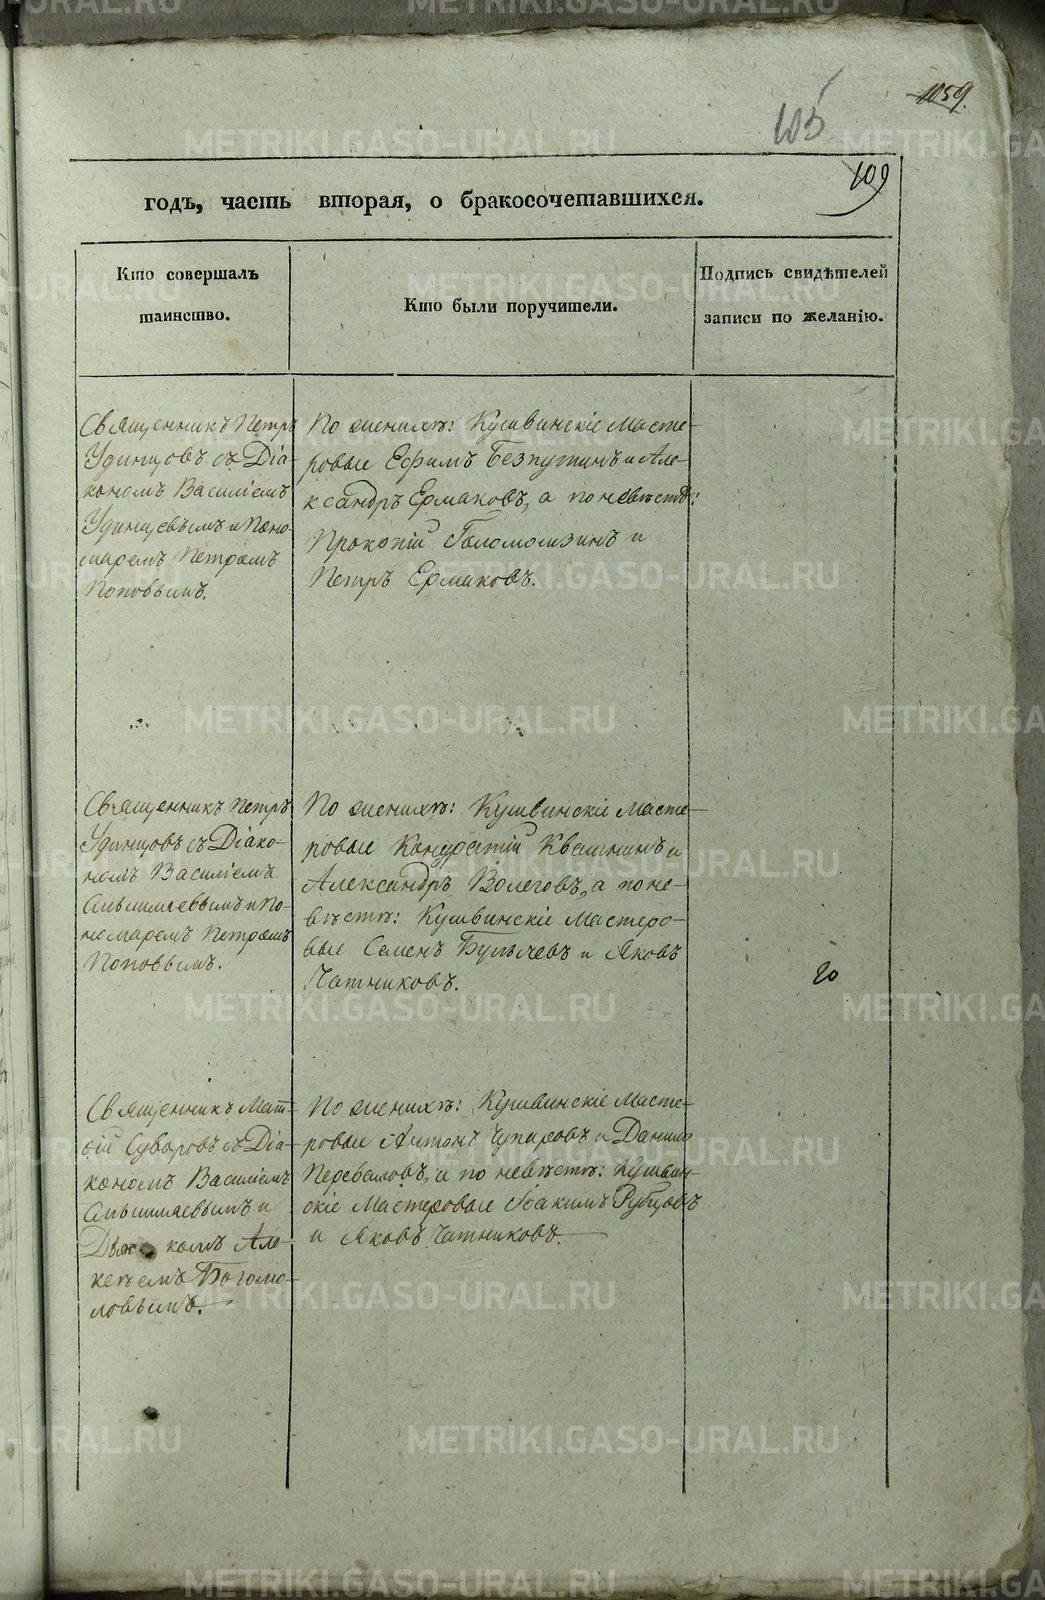 1059.
105
109
годъ, часть вторая, о бракосочетавшихся.
Кто совершалъ
таинство.
Кто были поручители.
Подпись свидѣтелей
записи по желанію.
Священникъ Петръ
Удинцовъ съ Діа-
кономъ Василіемъ
Удинцевымъ и Поно-
маремъ Петромъ
Поповымъ.
По женихѣ: Кушвинскіе Масте-
ровые Ефимъ Безпутинъ и Але-
ксандръ Ермаковъ, а по невѣстѣ:
Прокопій Голомолзинъ и
Петръ Ермаковъ.
Священникъ Петръ
Удинцовъ съ Діако-
номъ Василіемъ
и По-
номаремъ Петромъ
Поповымъ.
По женихѣ: Кушвинскіе Масте-
ровые Кондратій Квашнинъ и
Александръ Волеговъ, а по не-
вѣстѣ: Кушвинскіе Мастеро-
вые Семенъ Булычевъ и Яковъ
Чатниковъ.
20
Священникъ Мат-
ѳій Суворовъ съ Діа-
кономъ Василіемъ
и
Але-
ксѣемъ Богомо-
ловымъ.
По женихѣ: Кушвинскіе Масте-
ровые Антонъ Чупаровъ и Данило
Переваловъ, а по невѣстѣ: Кушвин-
скіе Мастеровые Іоакимъ Рубцовъ
и Яковъ Чатниковъ.
METRIKI.GASO-URAL.RU